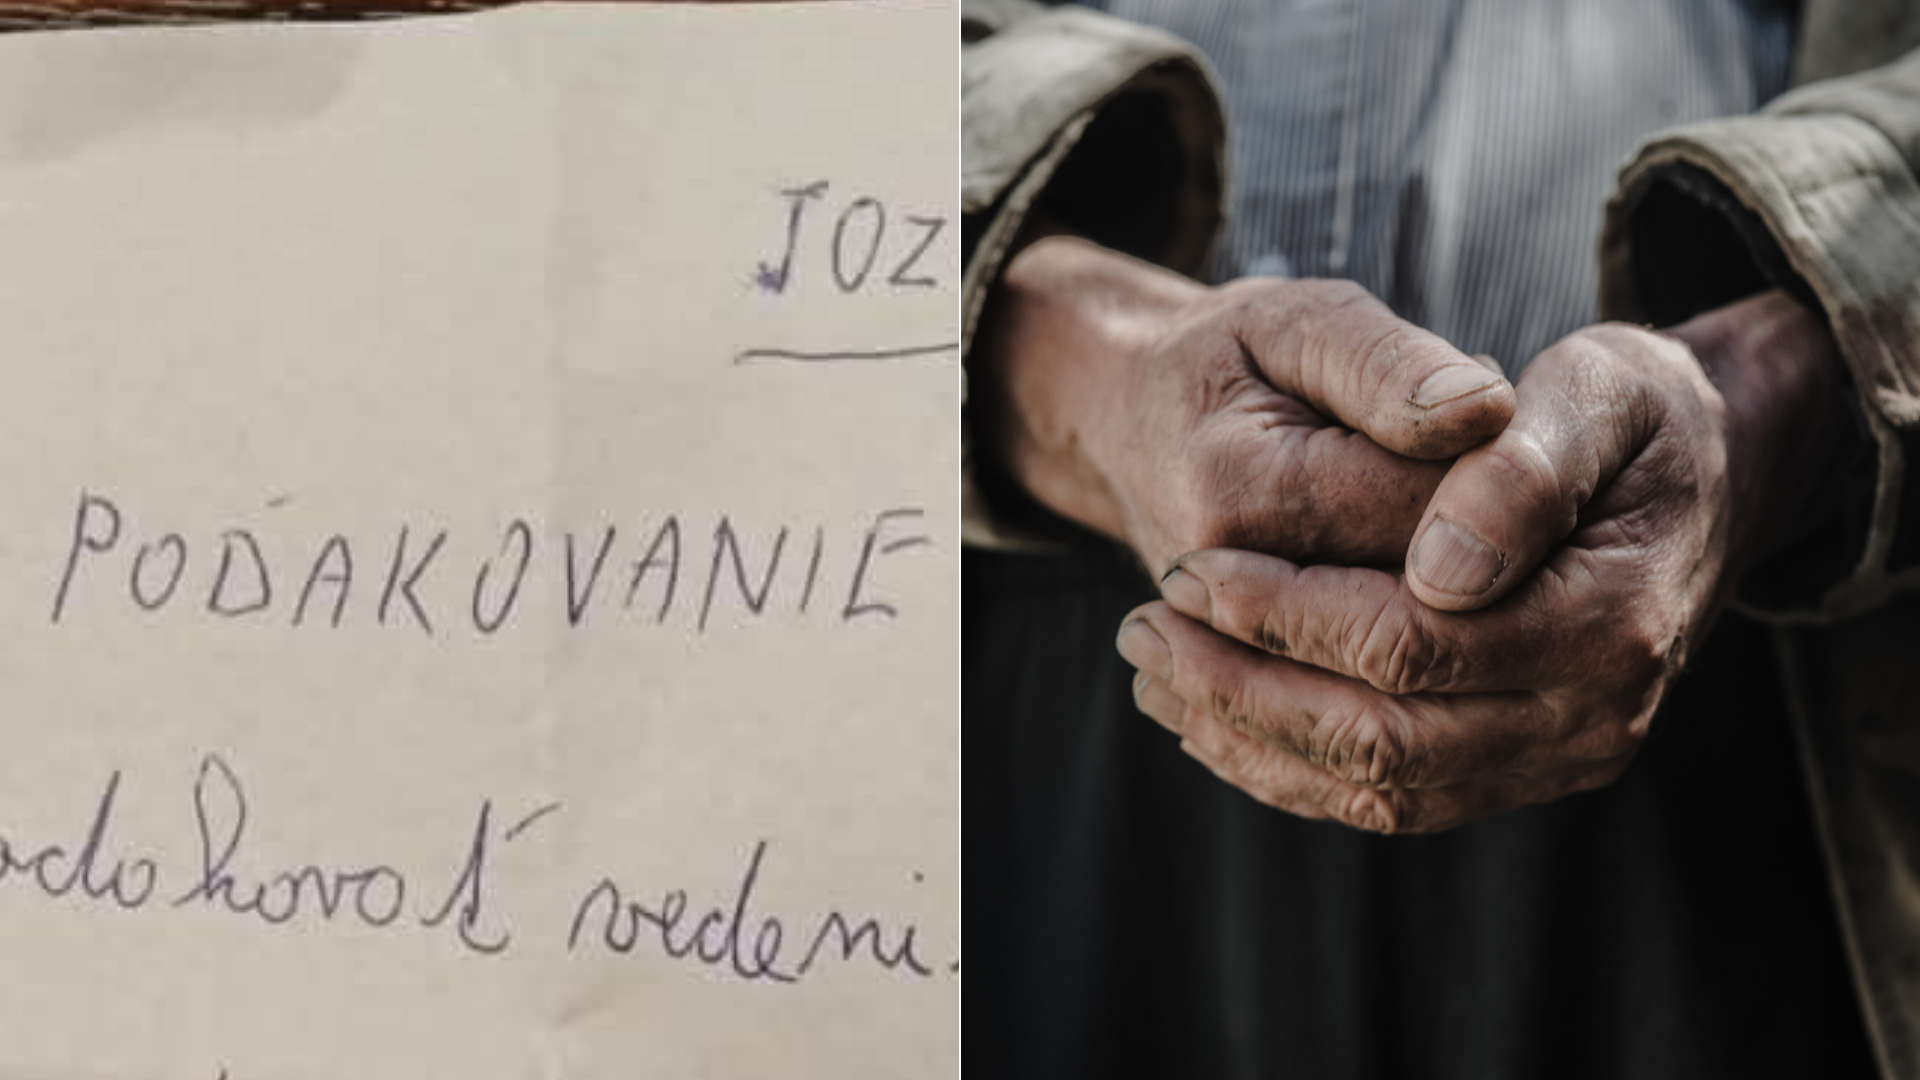 JOZ
POĎAKOVANIE
adakovať vedeni